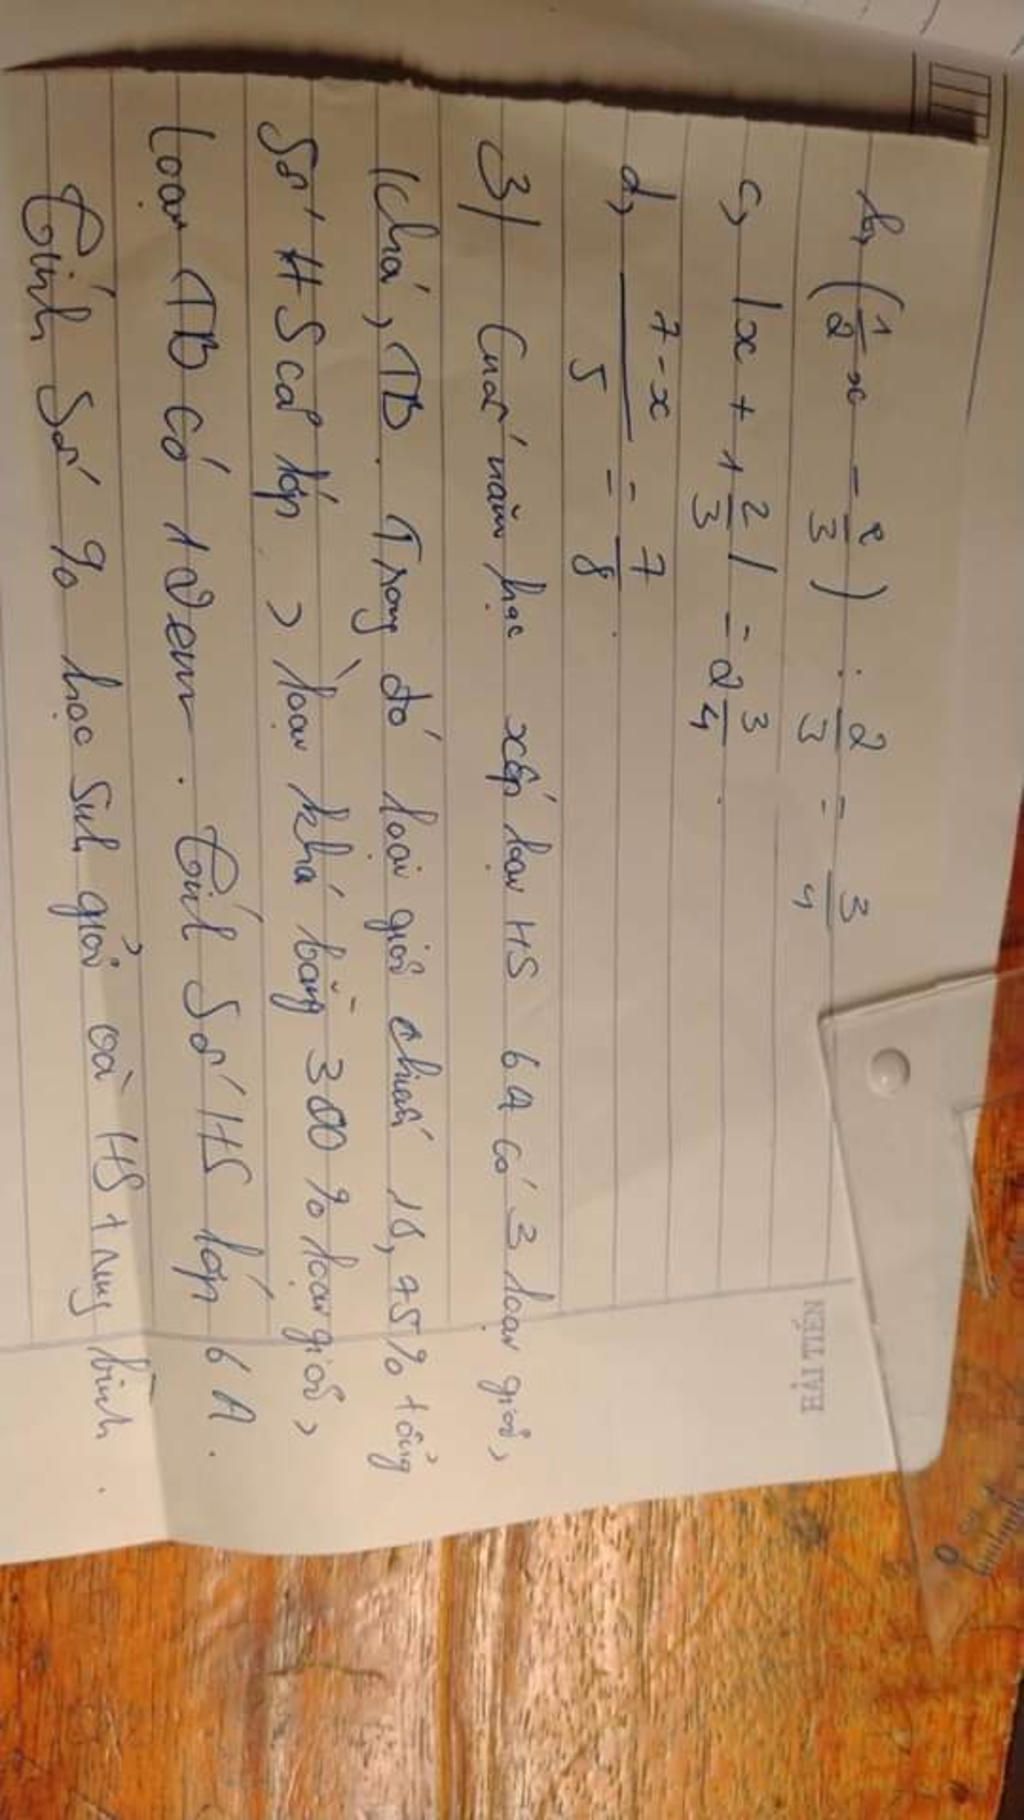 b, (1/2 x - 2/3) : 2/3 = 3/4
c, |x + 1 2/3| = 2 3/4.
d, (7-x)/5 = 7/8.
3/ Cuối năm học xếp loại HS 6A có 3 loại giỏi,
khá, TB. Trong đó loại giỏi chiếm 18,75% tổng
số HS cả lớp, loại khá bằng 300% loại giỏi,
loại TB có 12em. Tính Số HS lớp 6A.
Tính Số % học sinh giỏi và HS trung bình.
HẢI TIẾN